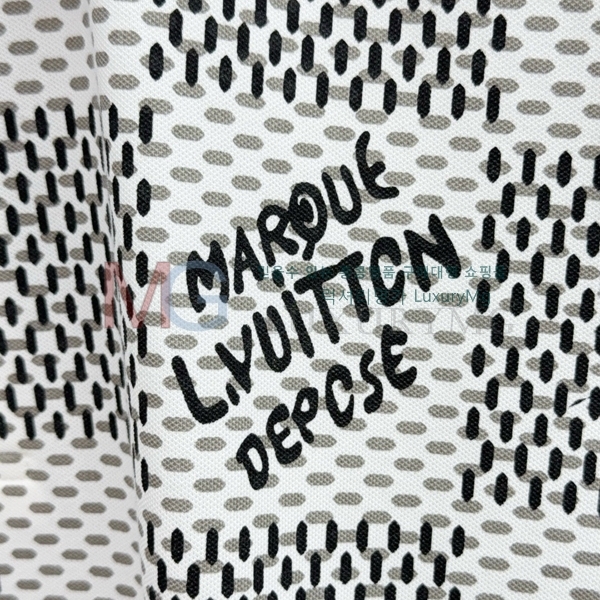 MARQUE
L.VUITTON
DEPOSE
MG
LuxuryMG
LUXURYMG